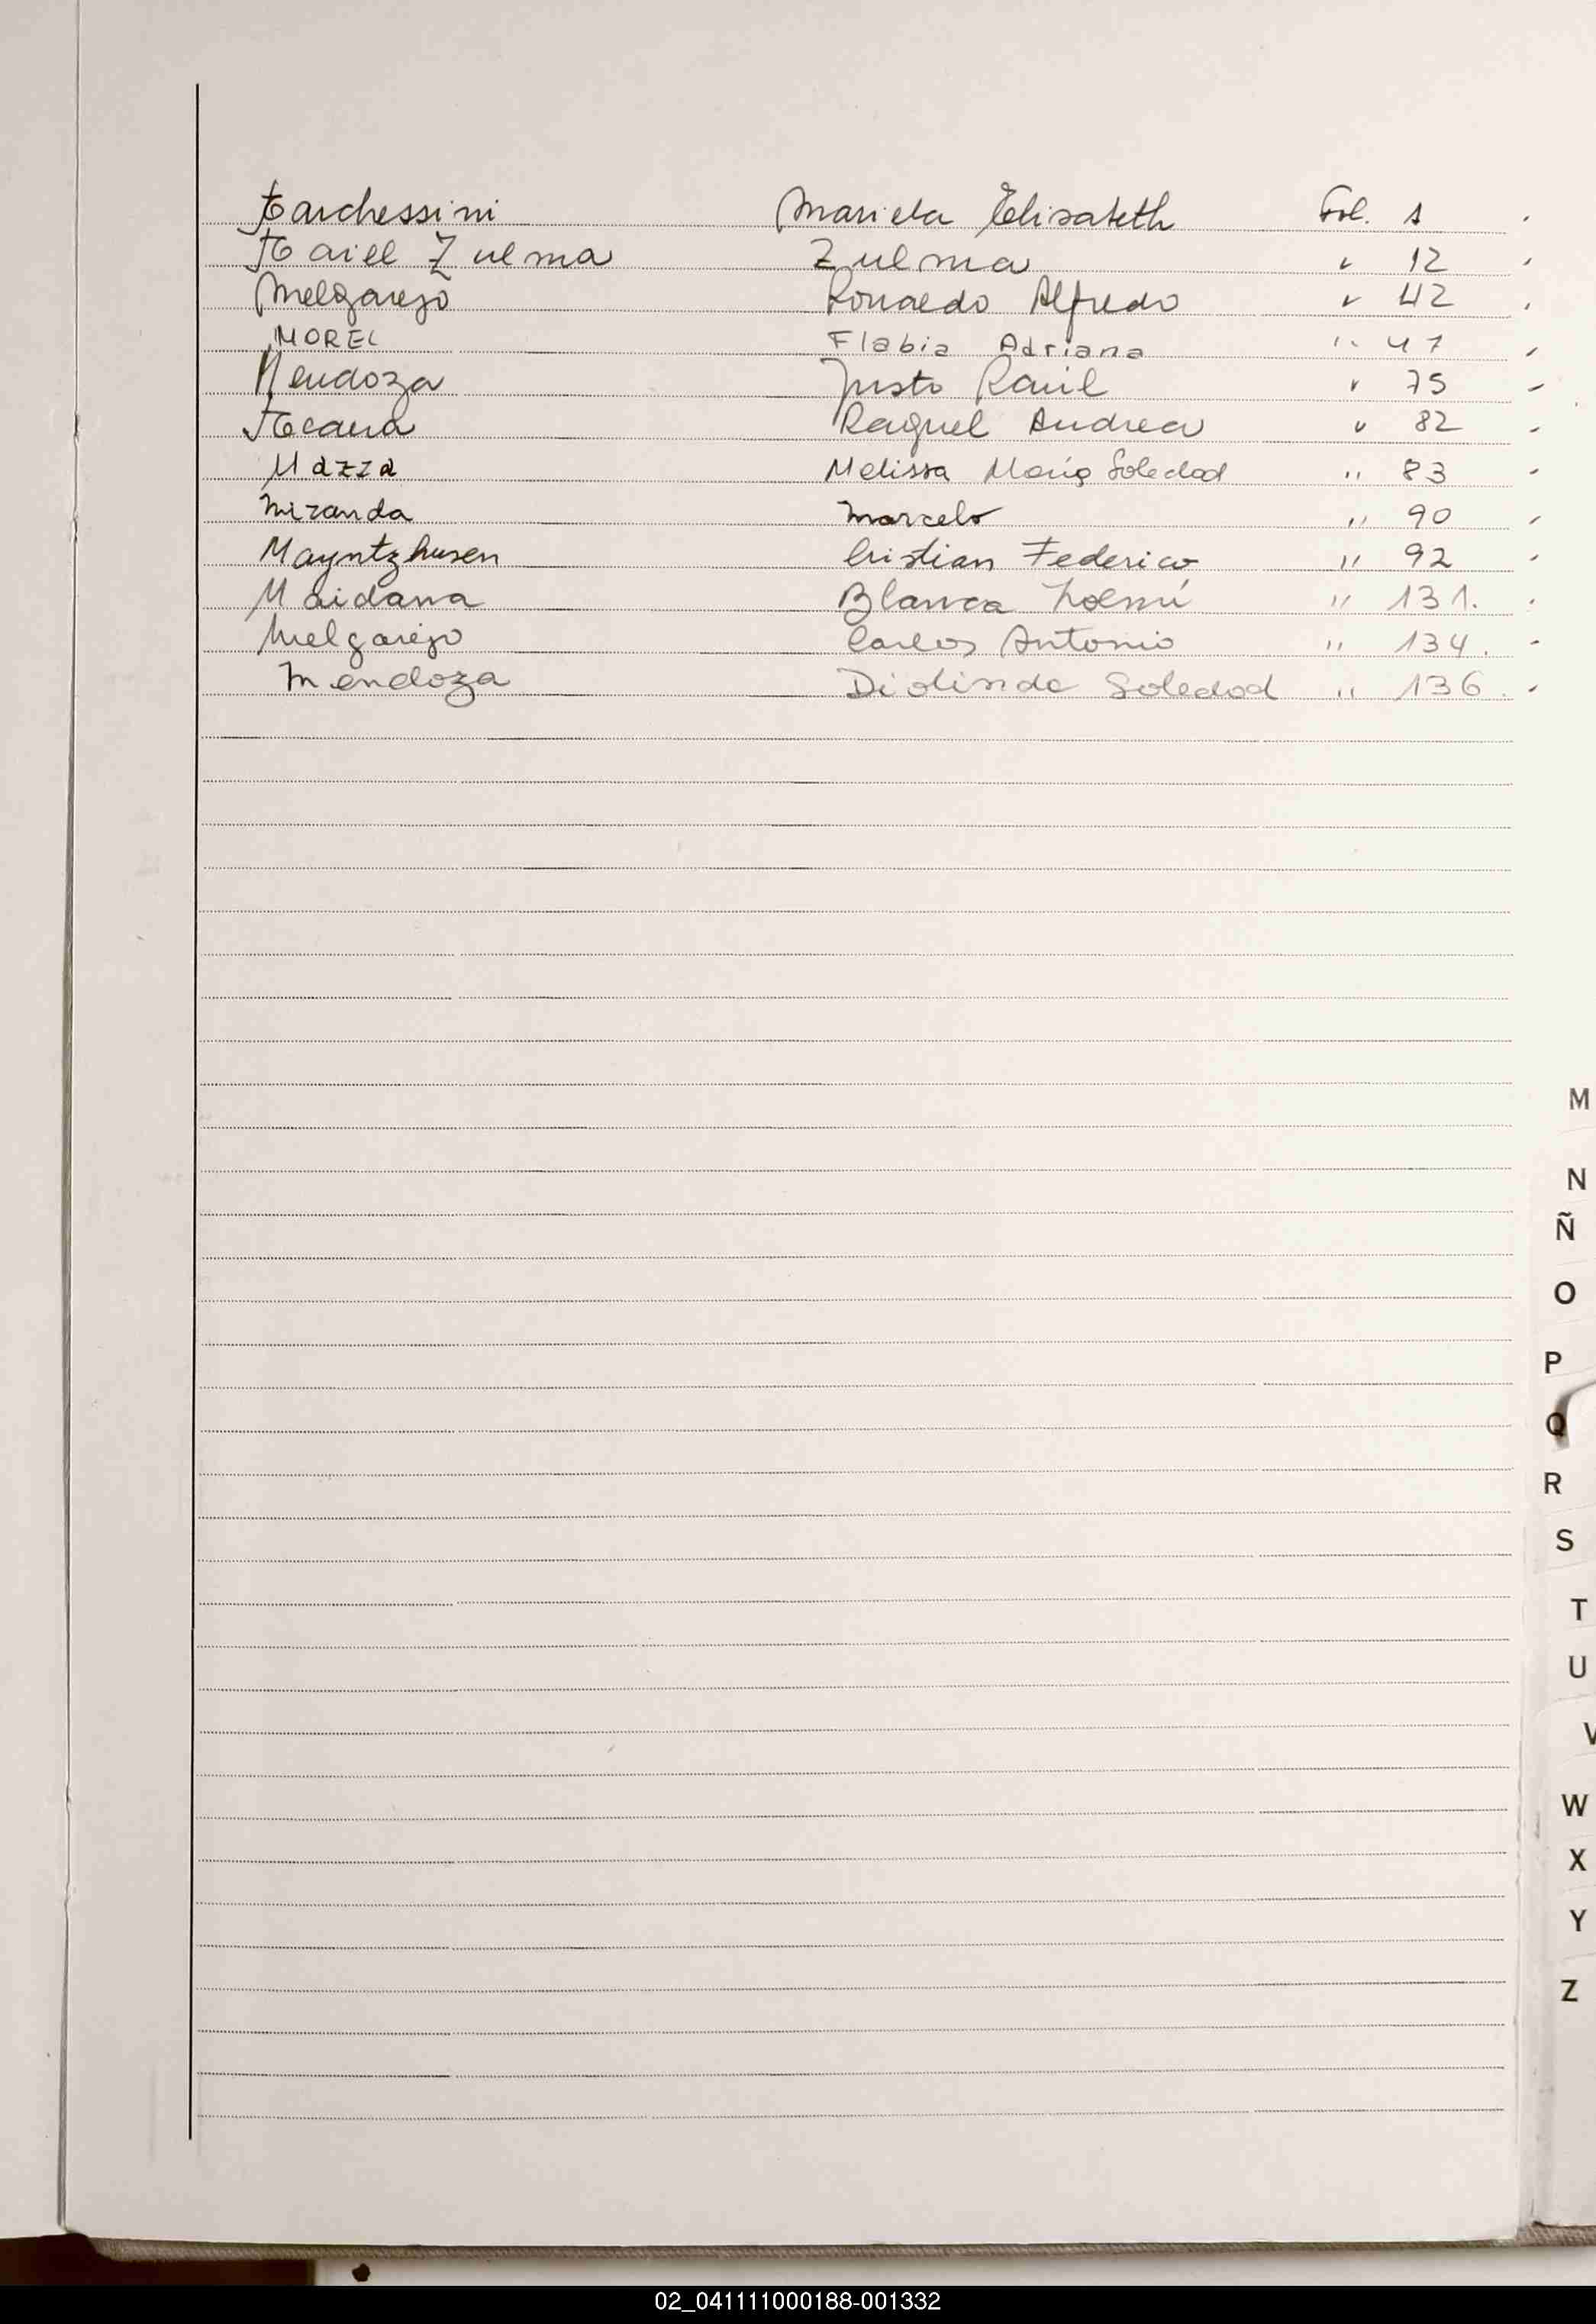 Marchessini Mariela Elisabeth Fol. 1
Maiel Zulma Zulma " 12
Melgarejo Ronaldo Alfredo " 42
MOREL Flabia Adriana " 47
Mendoza Justo Raúl " 75
Raquel Andrea " 82
Mazza Melissa María Soledad " 83
Miranda Marcelo " 90
Mayntzhusen Cristian Federico " 92
Maidana Blanca Noemí " 131.
Melgarejo Carlos Antonio " 134.
Mendoza Diolinda Soledad " 136.
M
N
Ñ
O
P
Q
R
S
T
U
V
W
X
Y
Z
02_041111000188-001332